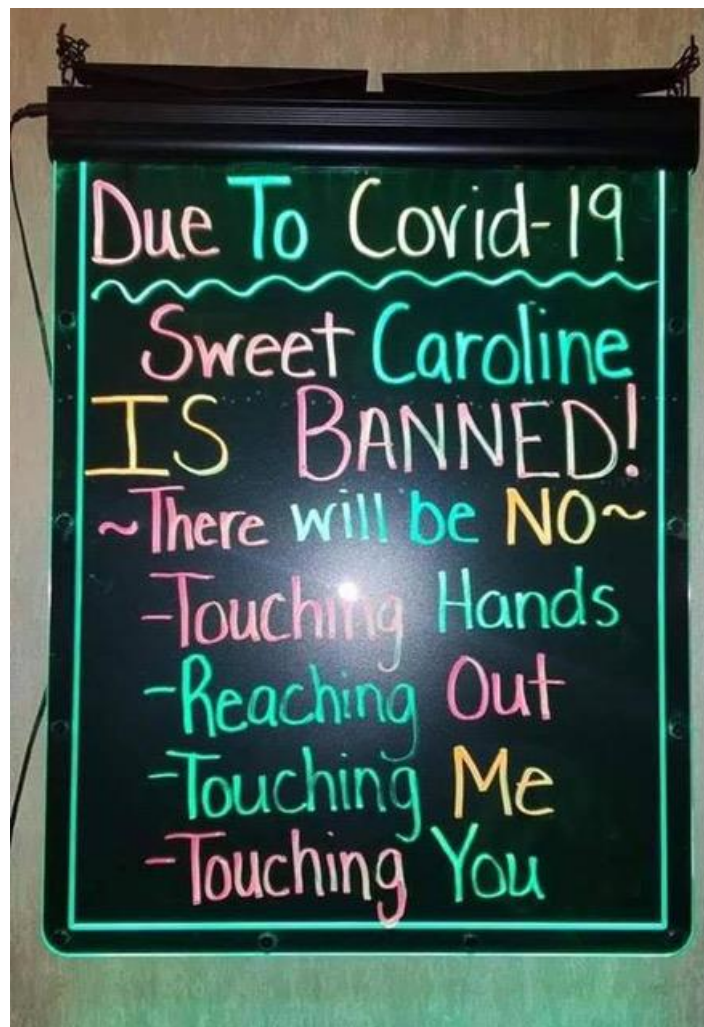 Due To Covid-19
Sweet Caroline
IS BANNED!
~There will be NO~
-Touching Hands
-Reaching Out
-Touching Me
-Touching You